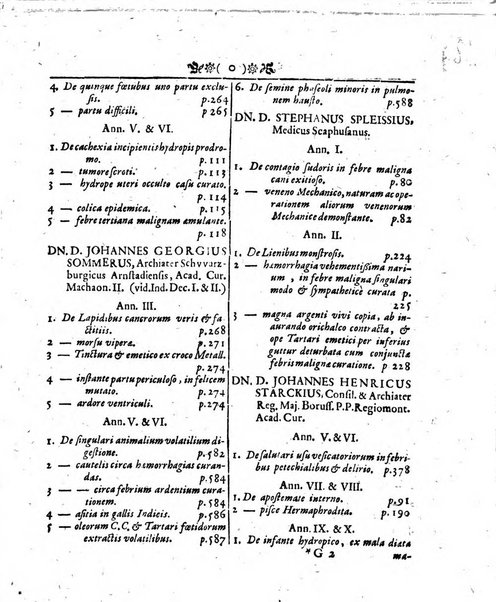 ( o )
4. De quinque fœtubus uno partu exclu-
sis. p.264
5 — partu difficili. p 265
Ann. V. & VI.
1. De cachexia incipientis hydropis prodro-
mo. p.111
2 — tumore scroti. p. 113
3 — hydrope uteri occulto casu curato.
p. 114
4 — colica epidemica. p. 115
5 — febre tertiana malignam amulante.
p. 118
DN. D. JOHANNES GEORGIUS
SOMMERUS, Archiater Schvvarz-
burgicus Arnstadiensis, Acad, Cur.
Machaon. II. (vid. Ind. Dec. I. & II.)
Ann. III.
1. De Lapidibus cancrorum veris & fa-
ctitiis. p.268
2 — morsu viperæ. p. 271
3 — Tinctura & emetico ex croco Metall.
p. 271
4 — instante partu periculoso, in felicem
mutato. p. 274
5 — ardore ventriculi. p.274
Ann. V. & VI.
1. De singulari animalium volatilium di-
gestione. p.582
2 — cautelis circa hæmorrhagias curan-
das. p.584
3 — — circa febrium ardentium cura-
tionem. p.584
4 — asitia in gallis Indicis. p.586
5 — oleorum C.C. & Tartari fœtidorum
extractis volatilibus. p.587
6. De semine phaseoli minoris in pulmo-
nem hausto. p.588
DN. D. STEPHANUS SPLEISSIUS,
Medicus Scaphusanus.
Ann. I.
1. De contagio sudoris in febre maligna
cani exitioso. p. 80
2 — veneno Mechanico, naturam ac ope-
rationem aliorum venenorum
Mechanice demonstante. p.82
Ann. II
1. De Lienibus monstrosis. p.224
2 — hæmorrhagia vehementissima nari-
um, in febre maligna singulari
modo & sympathetice curata p.
225
3 — magna argenti vivi copia, ab in-
aurando orichalco contracta, &
ope Tartari emetici per inferius
guttur deturbata cum conjuncta
febris malignæ curatione. p 228
DN. D. JOHANNES HENRICUS
STARCKIUS, Consil. & Archiater
Reg. Maj. Boruss. P. P. Regiomont.
Acad. Cur.
Ann. V. & VI.
1. De salutari usu vesicatoriorum in febri-
bus petechialibus & delirio. p.378
Ann. VII. & VIII.
1. De apostemate interno. p.91.
2 — pisce Hermaphrodita. p. 190
Ann. IX. & X.
1. De infante hydropico, ex mala diæta
*G 2 ma-